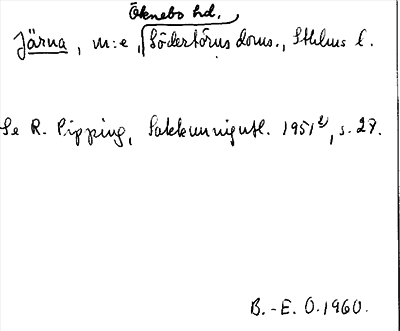 Öknebo hd.
Järna, m:e, Södertörns doms., Sthlms l.
Se R. Pipping, Sakkunnigutl. 1951, s. 27.
B.-E. O. 1960.